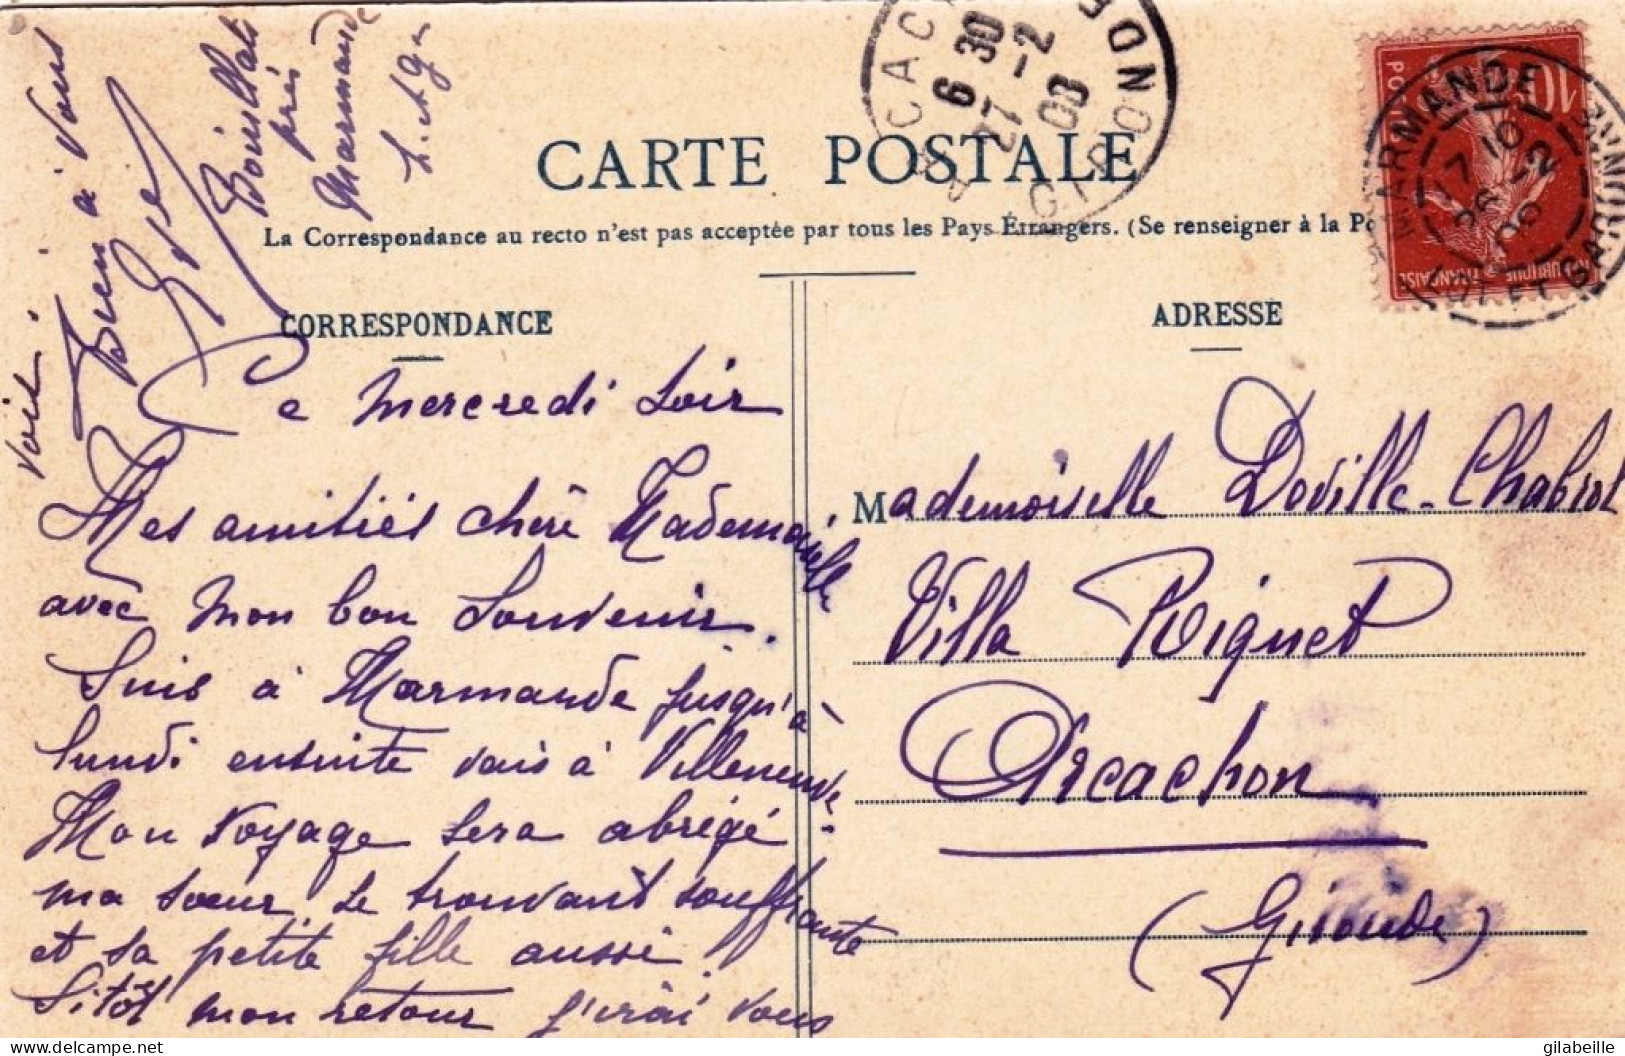 CARTE POSTALE
La Correspondance au recto n'est pas acceptée par tous les Pays Étrangers. (Se renseigner à la Po
CORRESPONDANCE
Ce Mercredi soir
Mes amitiés chère Mademoiselle
avec mon bon souvenir.
Suis à Marmande jusqu'à
lundi ensuite vais à Villeneuve.
Mon voyage sera abrégé
ma sœur se trouvant souffrante
et sa petite fille aussi!
Sitôt mon retour j'irai vous
voir!
Bien à Vous
près
Marmande
L. et G.
ADRESSE
Mademoiselle Doville-Chabrol
Villa Roignet
Arcachon
(Gironde)
ARCACHON
6 30
27 -2
08
GIRONDE
MARMANDE
17 10
26 -2
08
LOT ET GARONNE
10
gilabeille